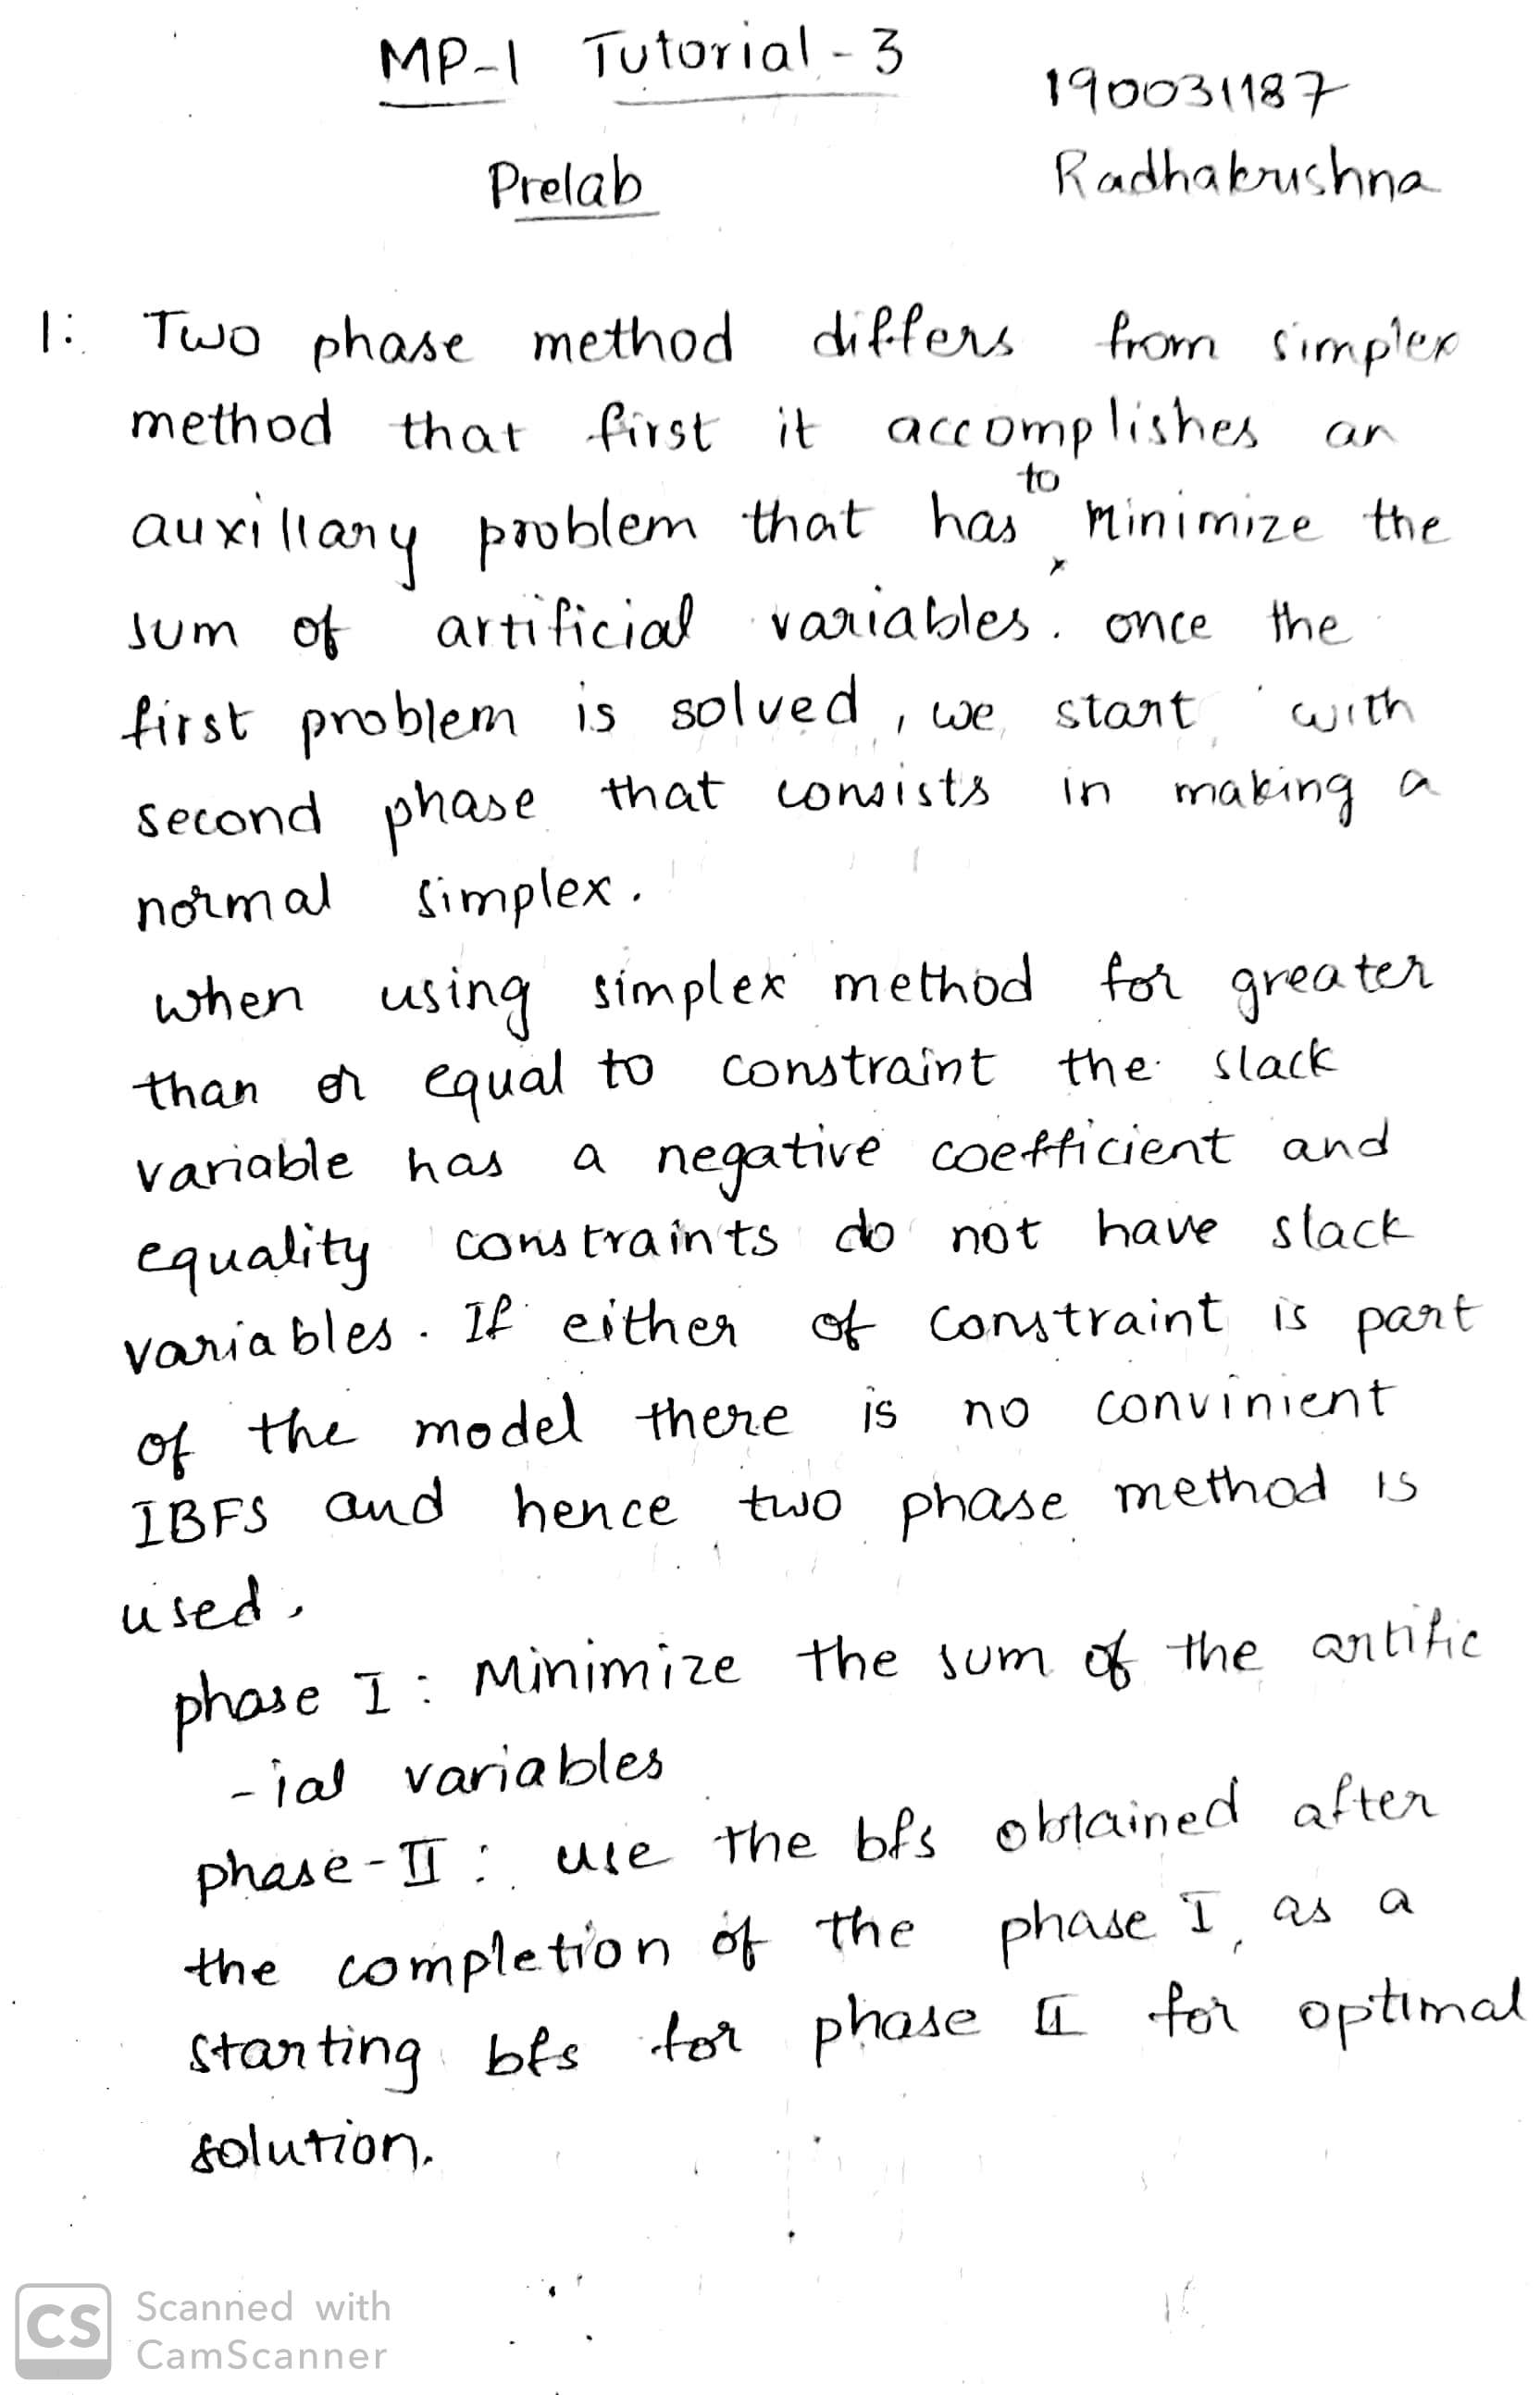 MP-1 Tutorial - 3
190031187
Prelab
Radhakrushna
1: Two phase method differs from simplex
method that first it accomplishes an
auxillary problem that has to minimize the
sum of artificial variables. once the
first problem is solved, we start with
second phase that consists in making a
normal simplex.
when using simplex method for greater
than or equal to constraint the slack
variable has a negative coefficient and
equality constraints do not have slack
variables. If either of constraint is part
of the model there is no convinient
IBFS and hence two phase method is
used.
phase I : Minimize the sum of the artific
-ial variables
phase-II : use the bfs obtained after
the completion of the phase I, as a
starting bfs for phase II for optimal
solution.
CS Scanned with
CamScanner